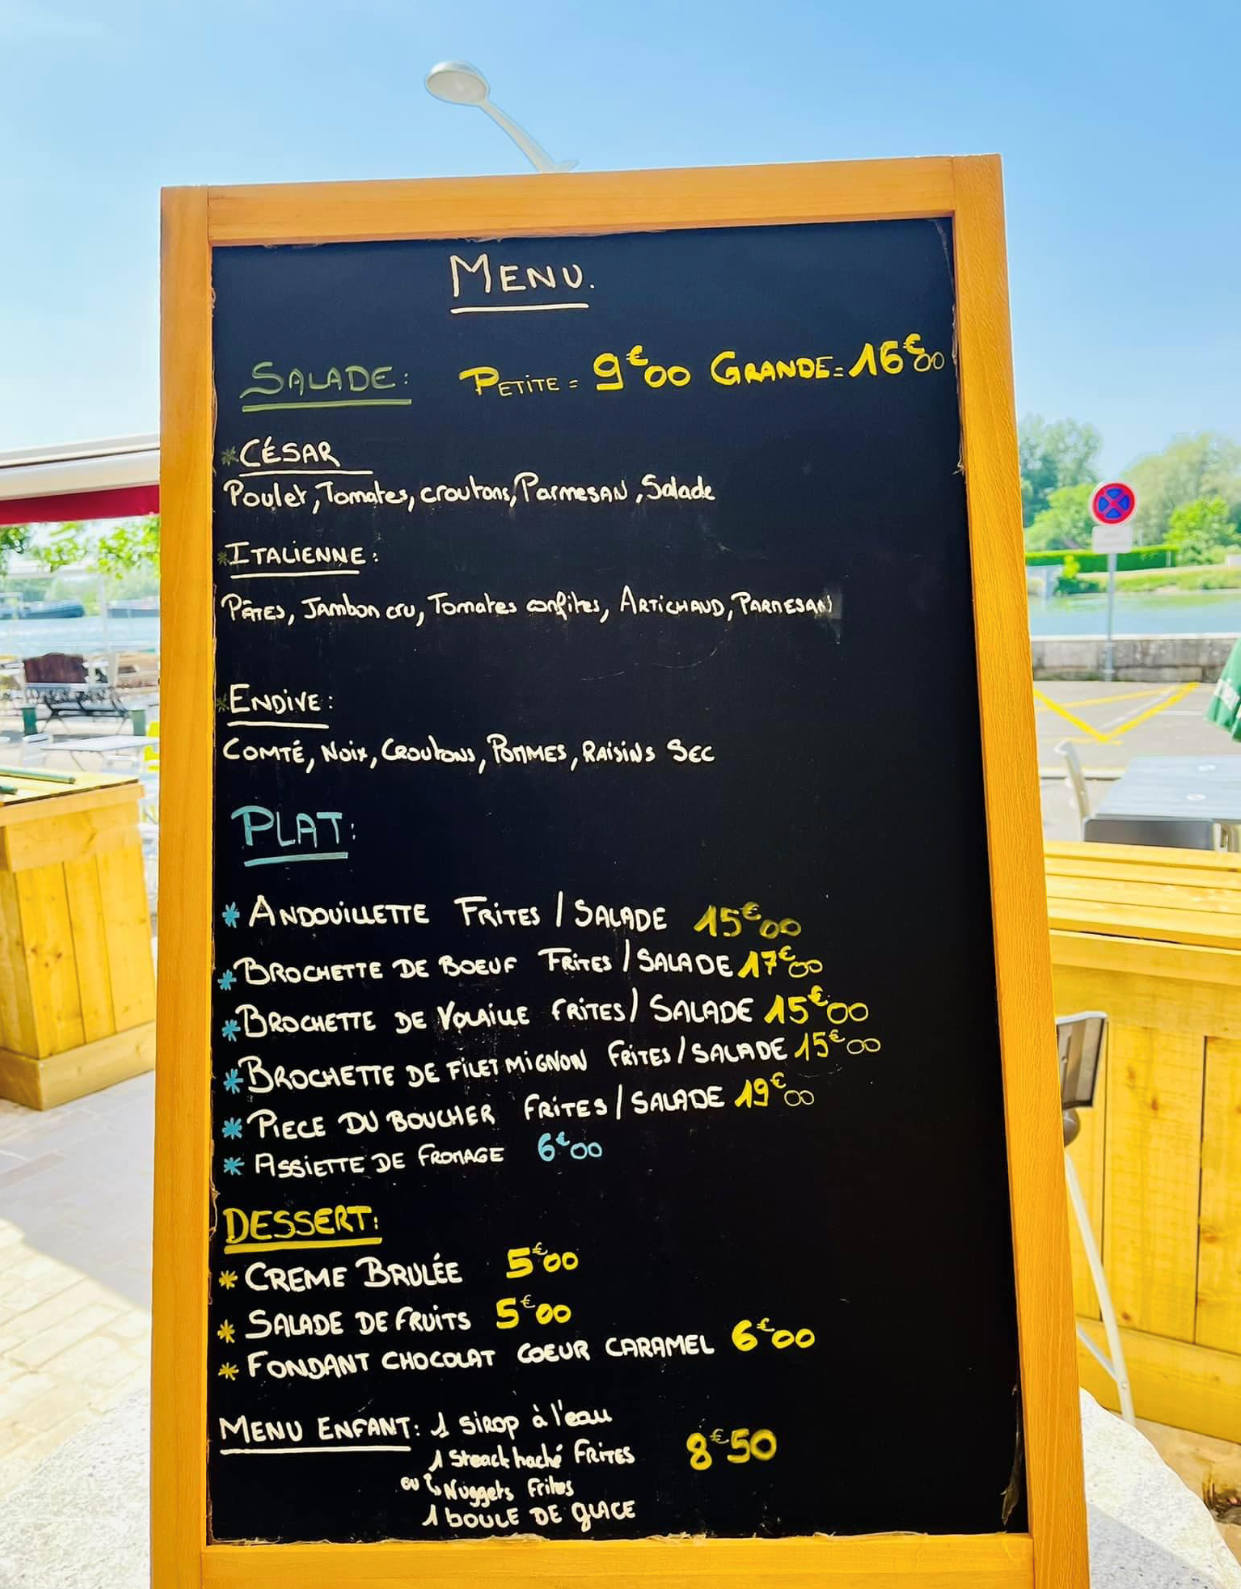 MENU.
SALADE: PETITE = 9€00 GRANDE = 16€00
*CÉSAR
Poulet, Tomates, croutons, Parmesan, Salade
*ITALIENNE:
PÂTES, Jambon cru, Tomates confites, ARTICHAUD, PARMESAN
*ENDIVE:
COMTÉ, Noix, Croutons, POMMES, RAISINS SEC
PLAT:
* ANDOUILLETTE FRITES / SALADE 15€00
* BROCHETTE DE BOEUF FRITES / SALADE 17€00
* BROCHETTE DE VOLAILLE FRITES / SALADE 15€00
* BROCHETTE DE FILET MIGNON FRITES / SALADE 15€00
* PIECE DU BOUCHER FRITES / SALADE 19€00
* ASSIETTE DE FROMAGE 6€00
DESSERT:
* CREME BRULÉE 5€00
* SALADE DE FRUITS 5€00
* FONDANT CHOCOLAT COEUR CARAMEL 6€00
MENU ENFANT: 1 sirop à l'eau
1 Steack haché FRITES 8€50
ou ↳ Nuggets Frites
1 BOULE DE GLACE